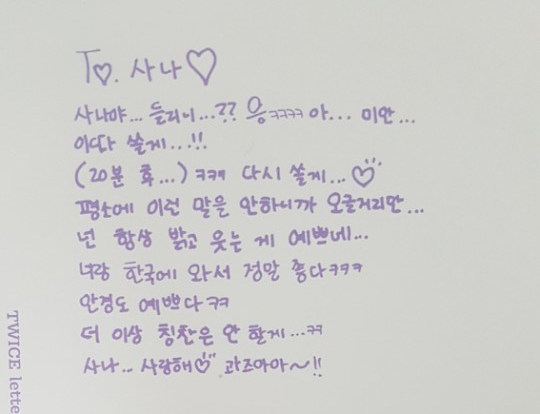 To. 사나♡
사나야... 들리니...?? 응ㅋㅋㅋㅋ 아... 미안...
이따 쓸게...!!
(20분 후...) ㅋㅋㅋ 다시 쓸게...♡
평소에 이런 말을 안하니까 오글거리만...
넌 항상 밝고 웃는 게 예쁘네...
너랑 한국에 와서 정말 좋다ㅋㅋㅋ
안경도 예쁘다ㅋㅋ
더 이상 칭찬은 안 할게...ㅋㅋ
사나... 사랑해♡ 과즈아아~!!
TWICE lette